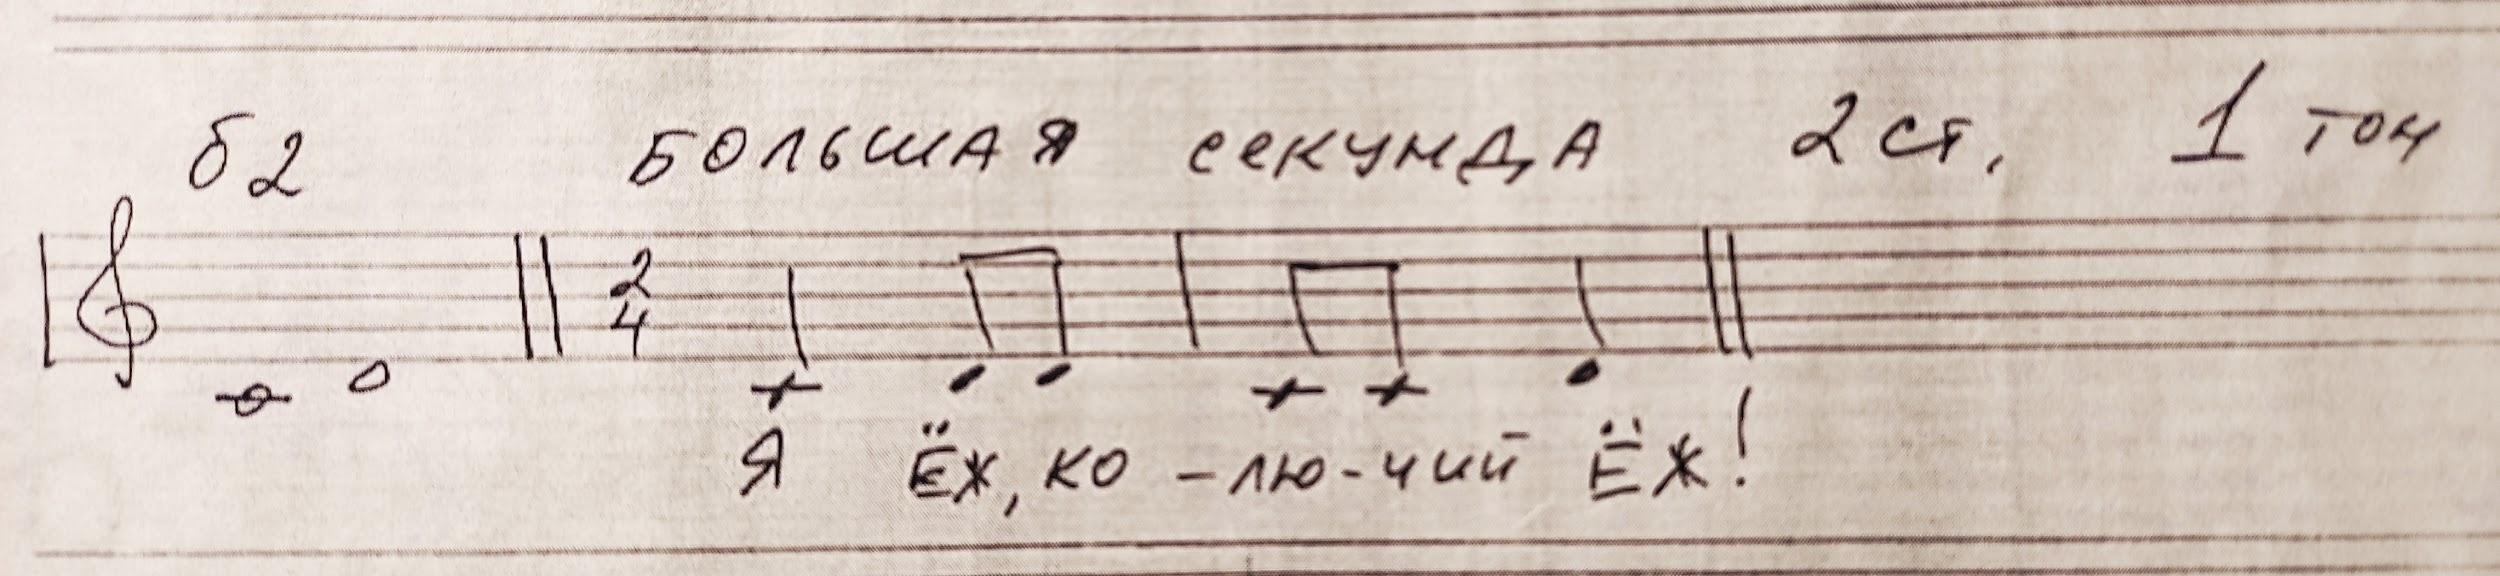 б2 БОЛЬШАЯ секунДА 2 ст. 1 тон
2
4
Я Ёж, ко-лю-чий Ёж!